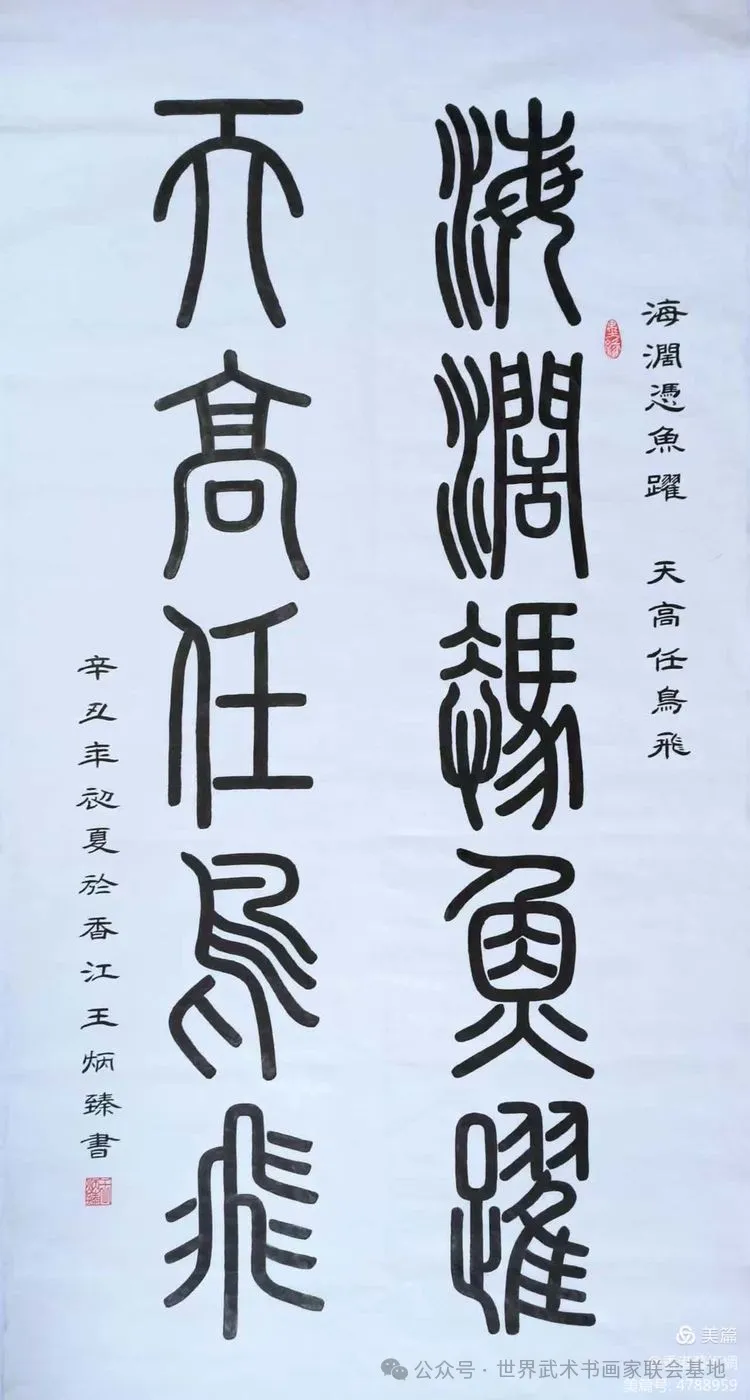 海濶憑魚躍 天高任鳥飛
海濶憑魚躍
天高任鳥飛
辛丑年初夏於香江王炳臻書
美篇
公众号·世界武术书画家联会基地
美篇号: 4788959